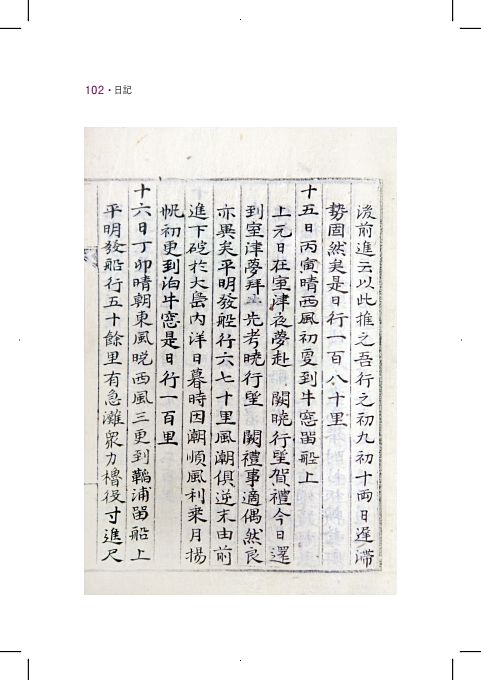 102・日記
後前進云以此推之吾行之初九初十兩日遲滯
勢固然矣是日行一百八十里
十五日丙寅晴西風初更到牛窓留船上
上元日在室津夜夢赴 闕曉行望賀禮今日還
到室津夢拜 先考曉行望 闕禮事適偶然良
亦異矣平明發船行六七十里風潮俱逆末由前
進下碇於大島內洋日暮時因潮順風利乘月揚
帆初更到泊牛窓是日行一百里
十六日丁卯晴朝東風晩西風三更到鞱浦留船上
平明發船行五十餘里有急灘衆力櫓役寸進尺